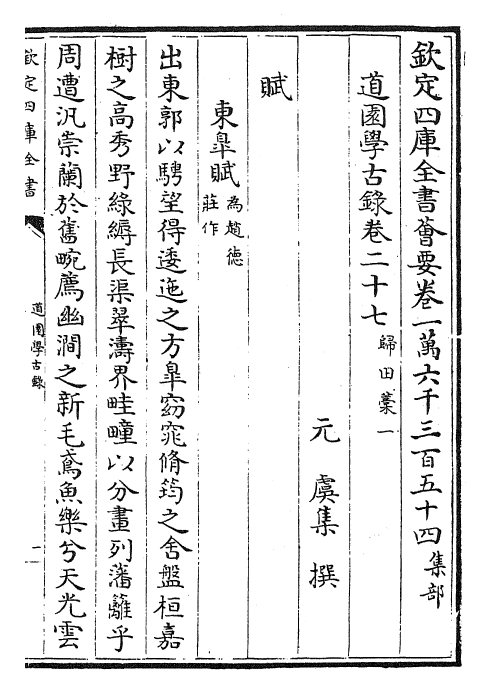 欽定四庫全書薈要卷一萬六千三百五十四集部
道園學古錄卷二十七歸田藁一
元 虞集 撰
賦
東臯賦為趙德莊作
出東郭以騁望得逶迤之方臯窈窕脩筠之舍盤桓嘉
樹之高秀野綠縟長渠翠濤界畦疃以分畫列藩籬乎
周遭汎崇蘭於舊畹薦幽澗之新毛鳶魚樂兮天光雲
欽定四庫全書
道園學古錄
一